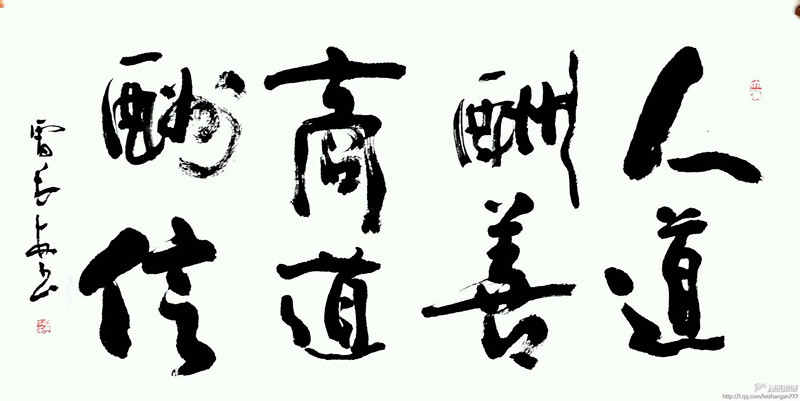 人道
酬善
商道
酬信
雷长安书
腾讯微博
http://t.qq.com/leizhangan777